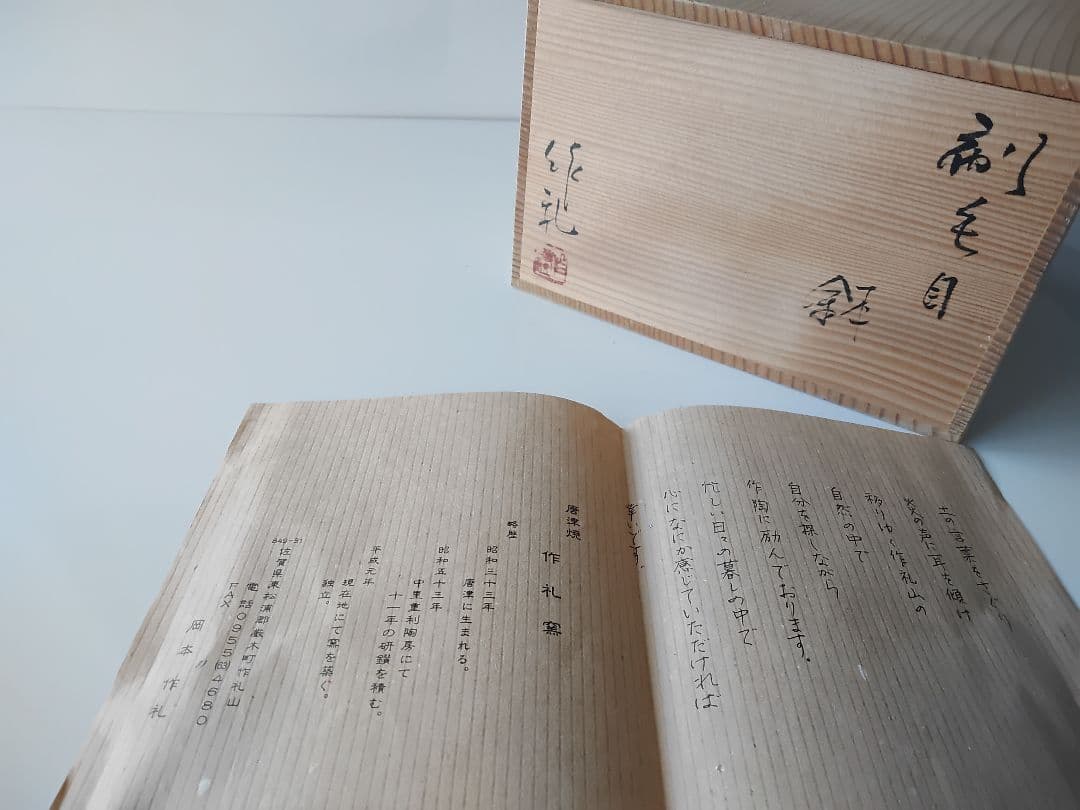 刷毛目
鉢
作礼
土の言葉をさぐり
炎の声に耳を傾け
移りゆく作礼山の
自然の中で
自分を探しながら
作陶に励んでおります。
忙しい日々の暮しの中で
心になにか感じていただければ
幸いです。
唐津焼
作礼窯
略歴
昭和三十三年
唐津に生まれる。
昭和五十三年
中里重利陶房にて
十一年の研鑽を積む。
平成元年
現在地にて窯を築ぐ。
独立。
849-31
佐賀県東松浦郡厳木町作礼山
電話0955(63)4680
FAX 〃
岡本作礼